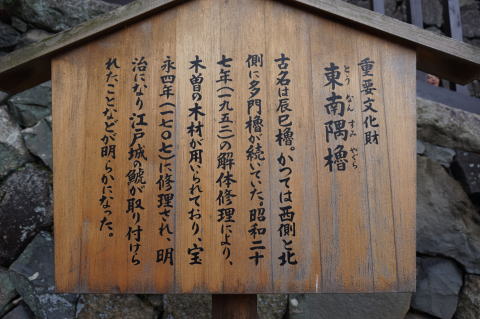 重要文化財
東南隅櫓
とう なん すみ やぐら
古名は辰巳櫓。かつては西側と北
側に多門櫓が続いていた。昭和二十
七年(一九五二)の解体修理により、
木曽の木材が用いられており、宝
永四年(一七〇七)に修理され、明
治になり江戸城の鯱が取り付けら
れたことなどが明らかになった。